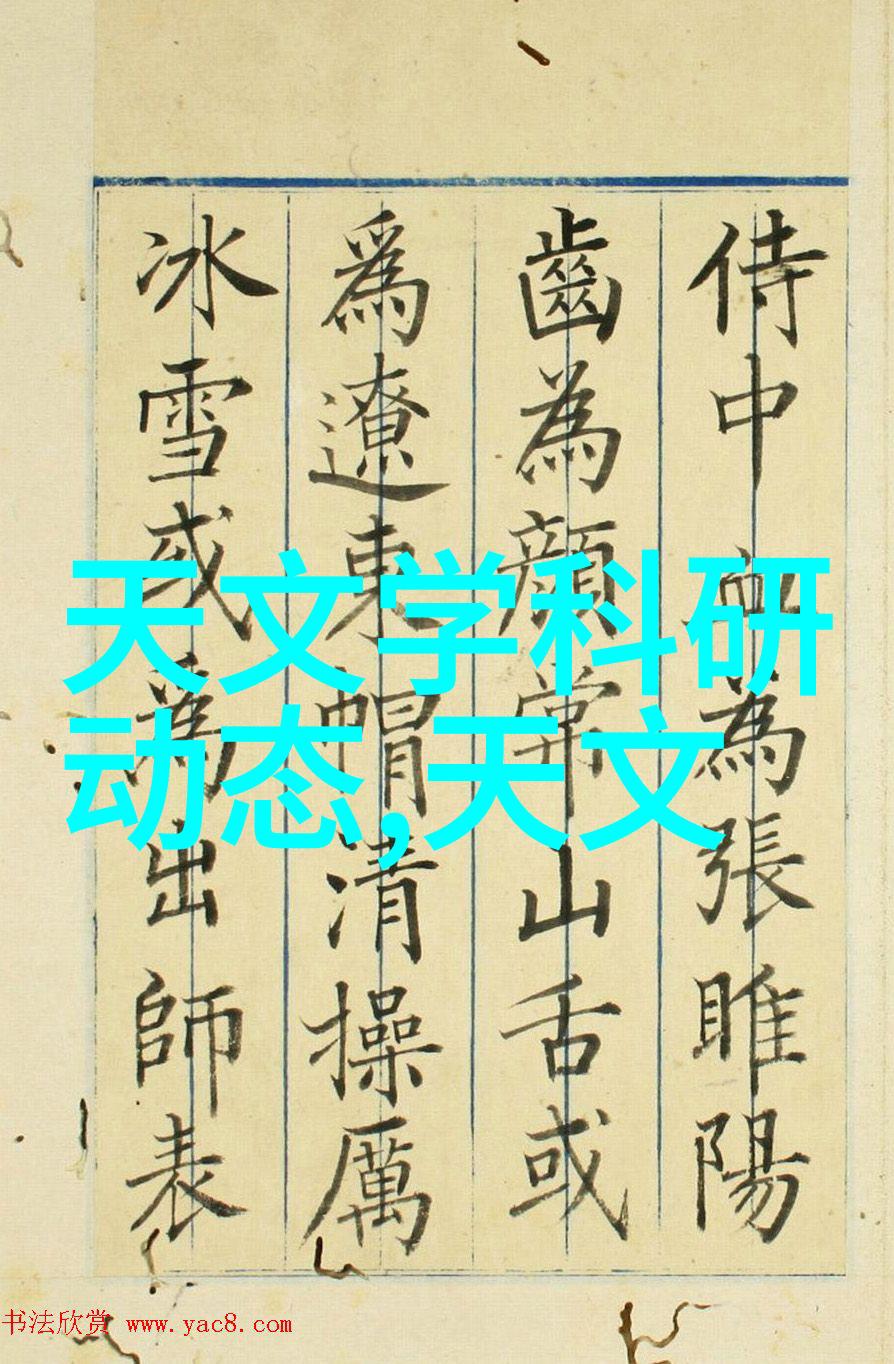 侍中血為張睢陽
齒為顏常山舌或
爲遼東帽清操厲
冰雪或爲出師表
天文学科研
动态,天文
书法欣赏 www.yac8.com